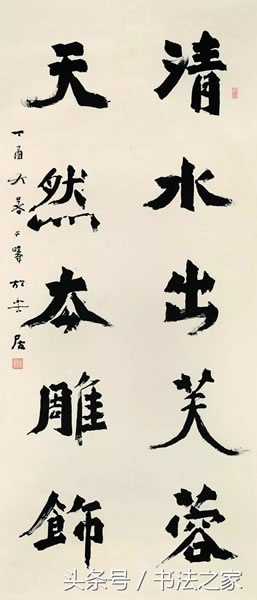 清水出芙蓉
天然去雕飾
丁酉大暑
头条号 / 书法之家